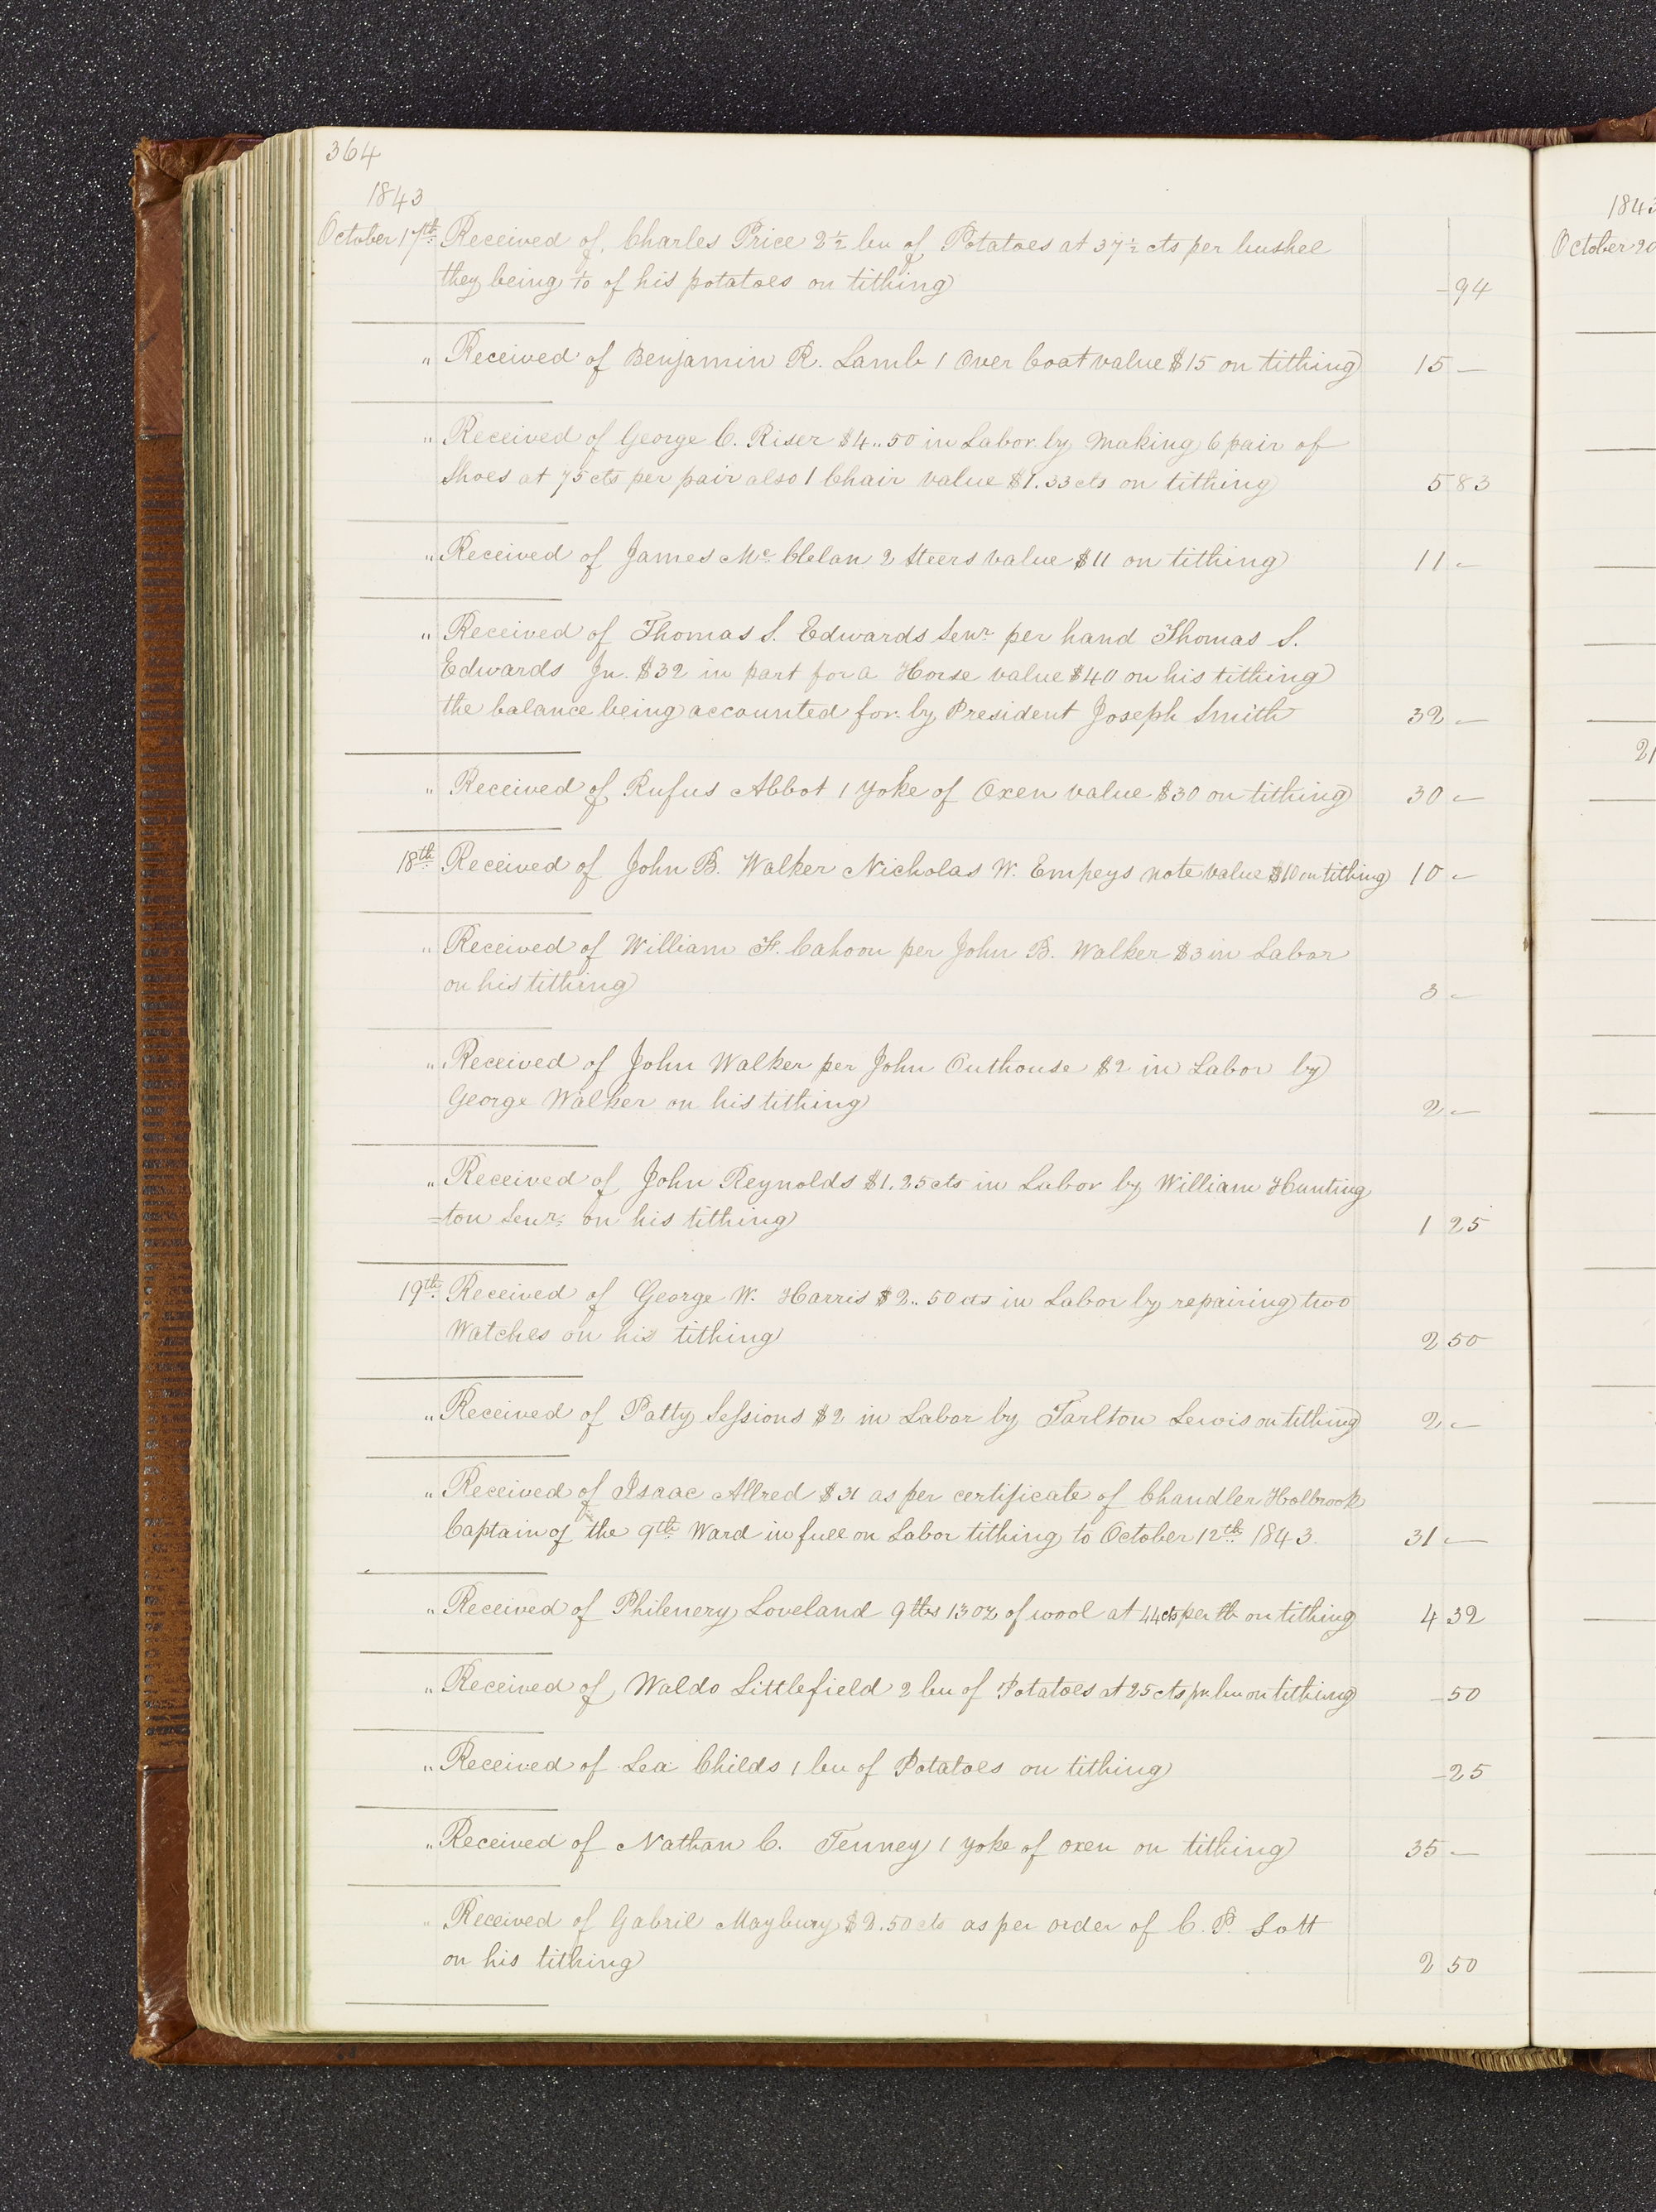 364
1843
October 17th. Received of Charles Price 2½ bu of Potatoes at 37½ cts per bushel
they being 1/10 of his potatoes on tithing
-94
" Received of Benjamin R. Lamb 1 Over Coat value $15 on tithing 15 -
" Received of George C. Riser $4..50 in Labor by making 6 pair of
Shoes at 75 cts per pair also 1 Chair value $1.33 cts on tithing 5 83
" Received of James Mc Clelan 2 Steers value $11 on tithing 11 -
" Received of Thomas S. Edwards Senr. per hand Thomas S.
Edwards Jn. $32 in part for a Horse value $40 on his tithing
the balance being accounted for by President Joseph Smith 32 -
" Received of Rufus Abbot 1 Yoke of Oxen value $30 on tithing 30 -
18th. Received of John B. Walker Nicholas W. Empeys note value $10 on tithing 10 -
" Received of William F. Cahoon per John B. Walker $3 in Labor
on his tithing 3 -
" Received of John Walker per John Outhouse $2 in Labor by
George Walker on his tithing 2 -
" Received of John Reynolds $1.25 cts in Labor by William Hunting
=ton Senr. on his tithing 1 25
19th. Received of George W. Harris $2..50 cts in Labor by repairing two
Watches on his tithing 2 50
" Received of Patty Sessions $2 in Labor by Tarlton Lewis on tithing 2 -
" Received of Isaac Allred $31 as per certificate of Chandler Holbrook
Captain of the 9th. Ward in full on Labor tithing to October 12th. 1843. 31 -
" Received of Philenery Loveland 9 lbs 13 oz of wool at 44 cts per lb on tithing 4 32
" Received of Waldo Littlefield 2 bu of Potatoes at 25 cts pr bu on tithing -50
" Received of Lea Childs 1 bu of Potatoes on tithing -25
" Received of Nathan C. Tenney 1 yoke of oxen on tithing 35 -
" Received of Gabril Maybury $2.50 cts as per order of C. P. Lott
on his tithing 2 50
1843
October 20
21